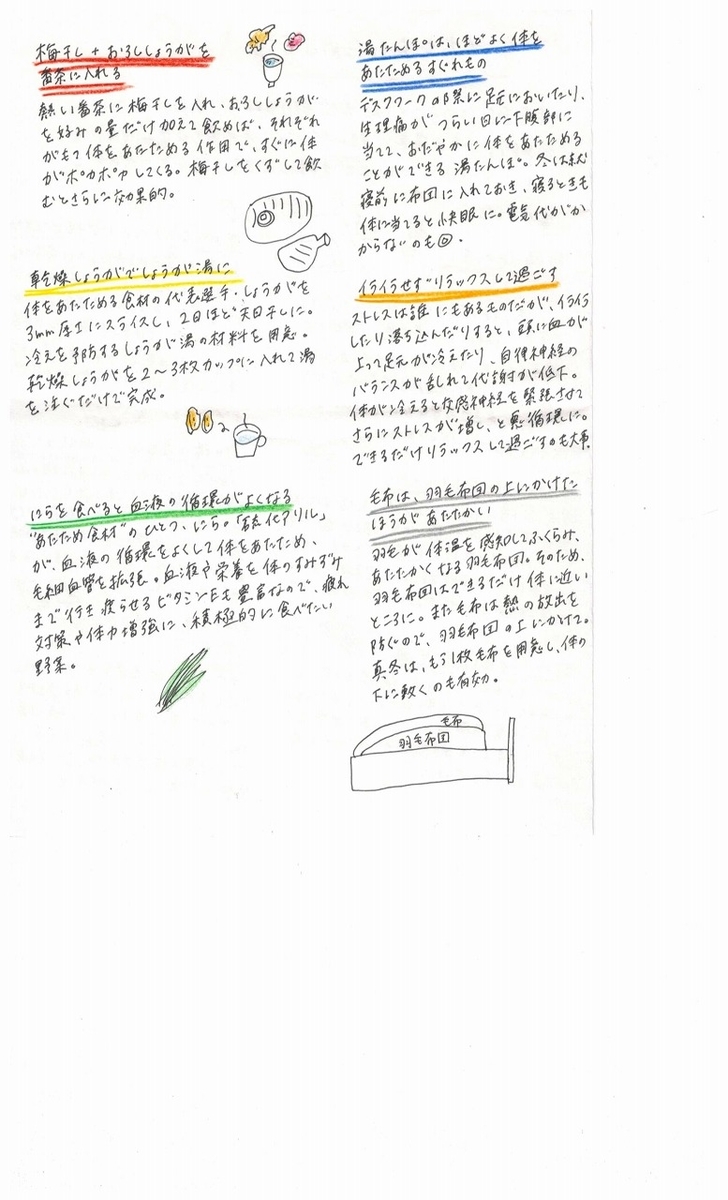 梅干し+おろししょうがを
番茶に入れる
熱い番茶に梅干しを入れ、おろししょうが
を好みの量だけ加えて飲めば、それぞれ
がもつ体をあたためる作用で、すぐに体
がポカポカしてくる。梅干しをくずして飲
むとさらに効果的。
乾燥しょうがでしょうが湯に
体をあたためる食材の代表選手・しょうがを
3mm厚さにスライスし、2日ほど天日干しに。
冷えを予防するしょうが湯の材料を用意。
乾燥しょうがを2〜3枚カップに入れて湯
を注ぐだけで完成。
にらを食べると血液の循環がよくなる
"あたため食材"のひとつ、にら。「硫化アリル」
が、血液の循環をよくして体をあたため、
毛細血管を拡張。血液や栄養を体のすみずみ
まで行き渡らせるビタミンEも豊富なので、疲れ
対策や体力増強に、積極的に食べたい
野菜。
湯たんぽは、ほどよく体を
あたためるすぐれもの
デスクワークの際に足元においたり、
生理痛がつらい日に下腹部に
当てて、おだやかに体をあたためる
ことができる湯たんぽ。冬は就
寝前に布団に入れておき、寝るときも
体に当てると快眠に。電気代がか
からないのも◎.
イライラせずリラックスして過ごす
ストレスは誰にもあるものだが、イライラ
したり落ち込んだりすると、頭に血が
上って足元が冷えたり、自律神経の
バランスが乱れて代謝が低下。
体が冷えると交感神経を緊張させて
さらにストレスが増し、と悪循環に。
できるだけリラックスして過ごすのも大事.
毛布は、羽毛布団の上にかけた
ほうがあたたかい
羽毛が体温を感知してふくらみ、
あたたかくなる羽毛布団。そのため、
羽毛布団はできるだけ体に近い
ところに。また毛布は熱の放出を
防ぐので、羽毛布団の上にかけて。
真冬は、もう1枚毛布を用意し、体の
下に敷くのも有効。
毛布
羽毛布団